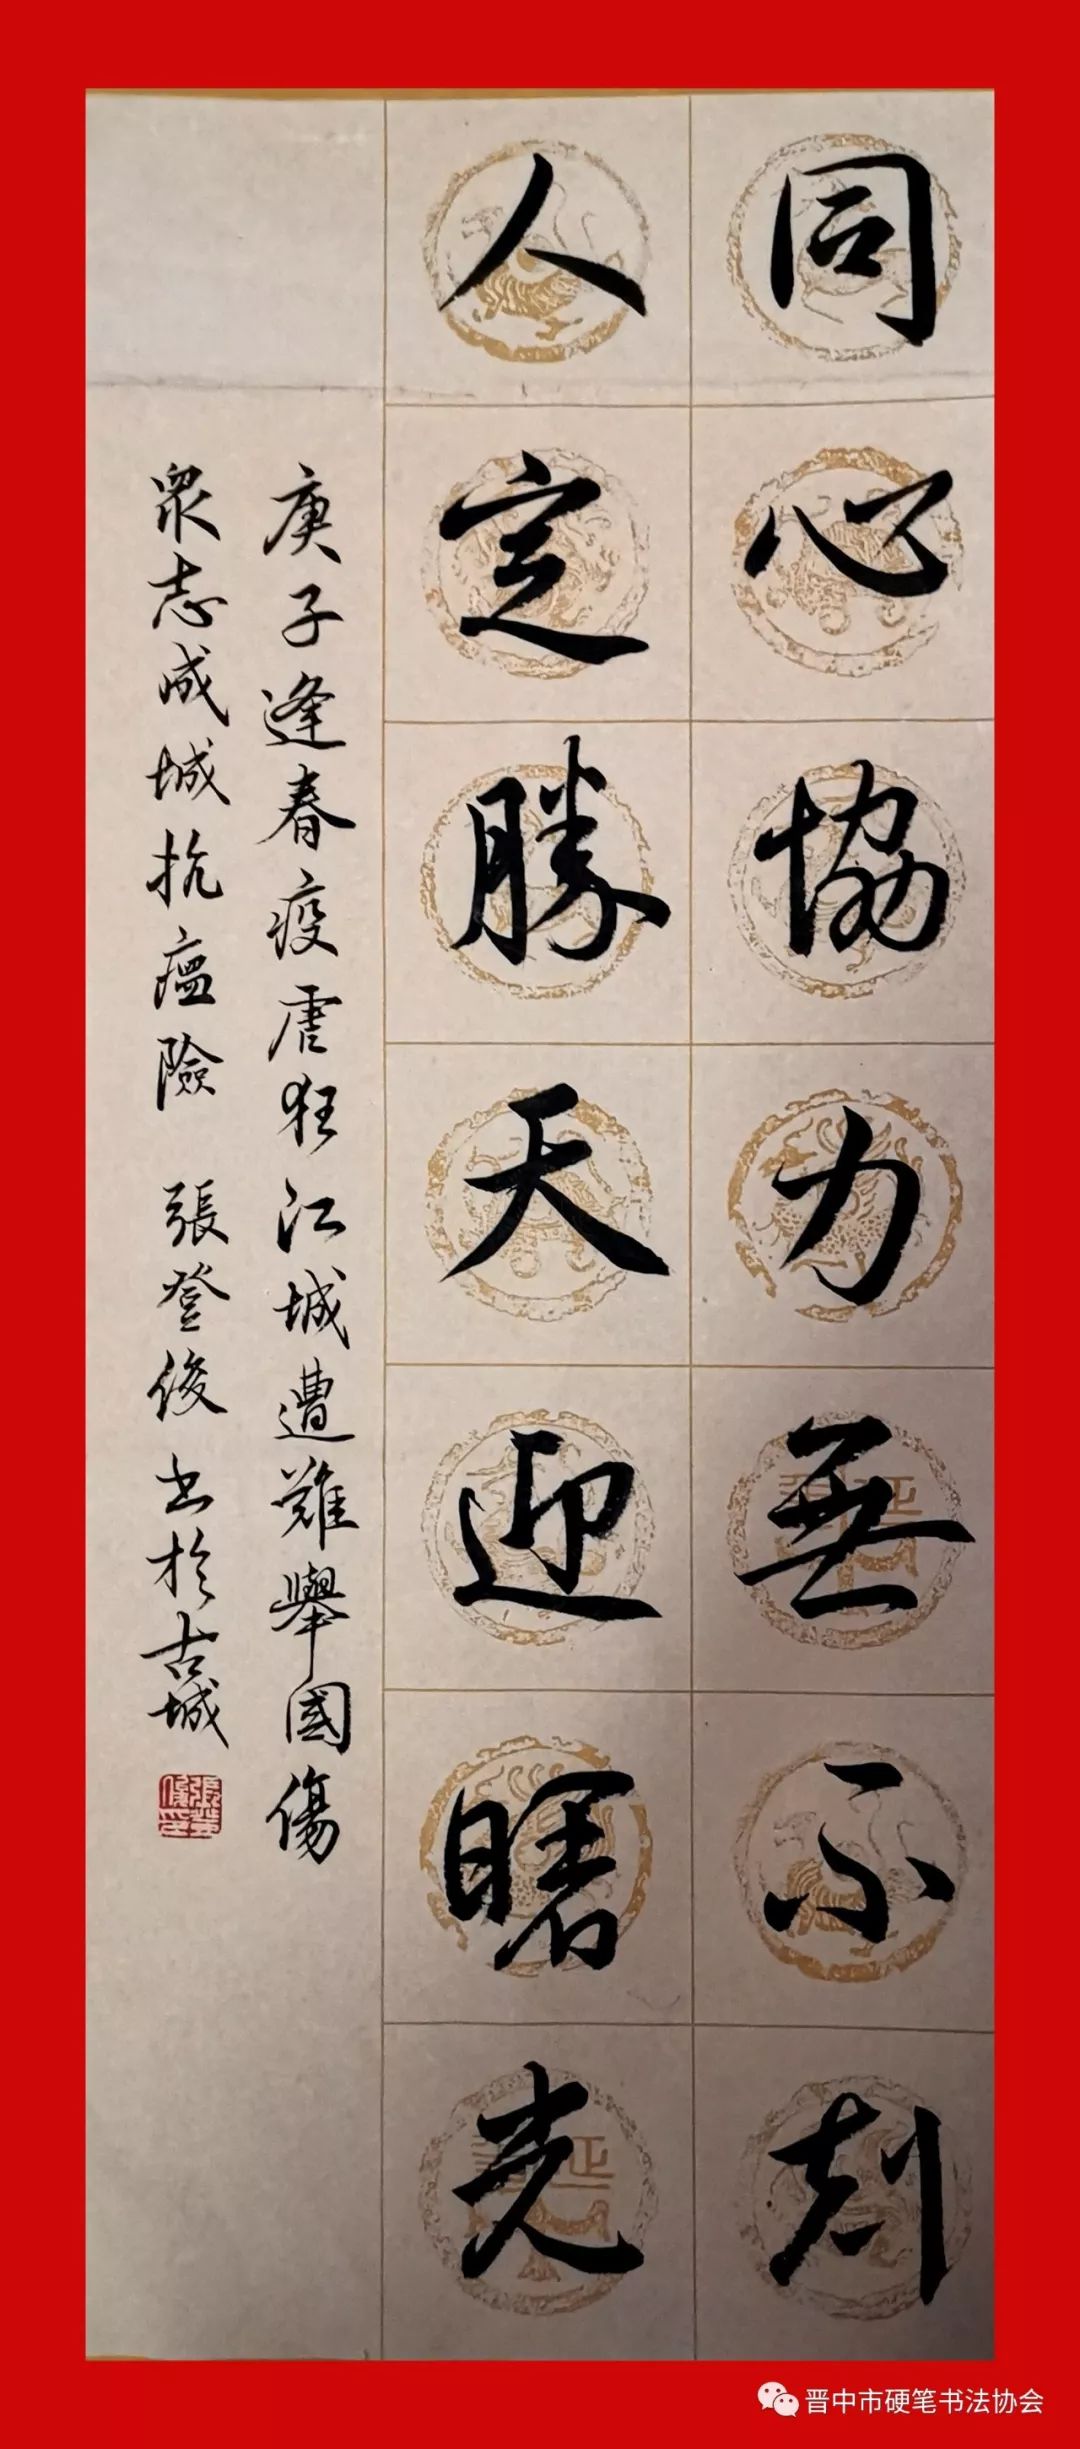 同心協力無不
人定勝天迎曙光
庚子逢春疫虐狂江城遭難舉國傷
衆志成城抗瘟險 張登俊书於古城
張登俊印
晋中市硬笔书法协会